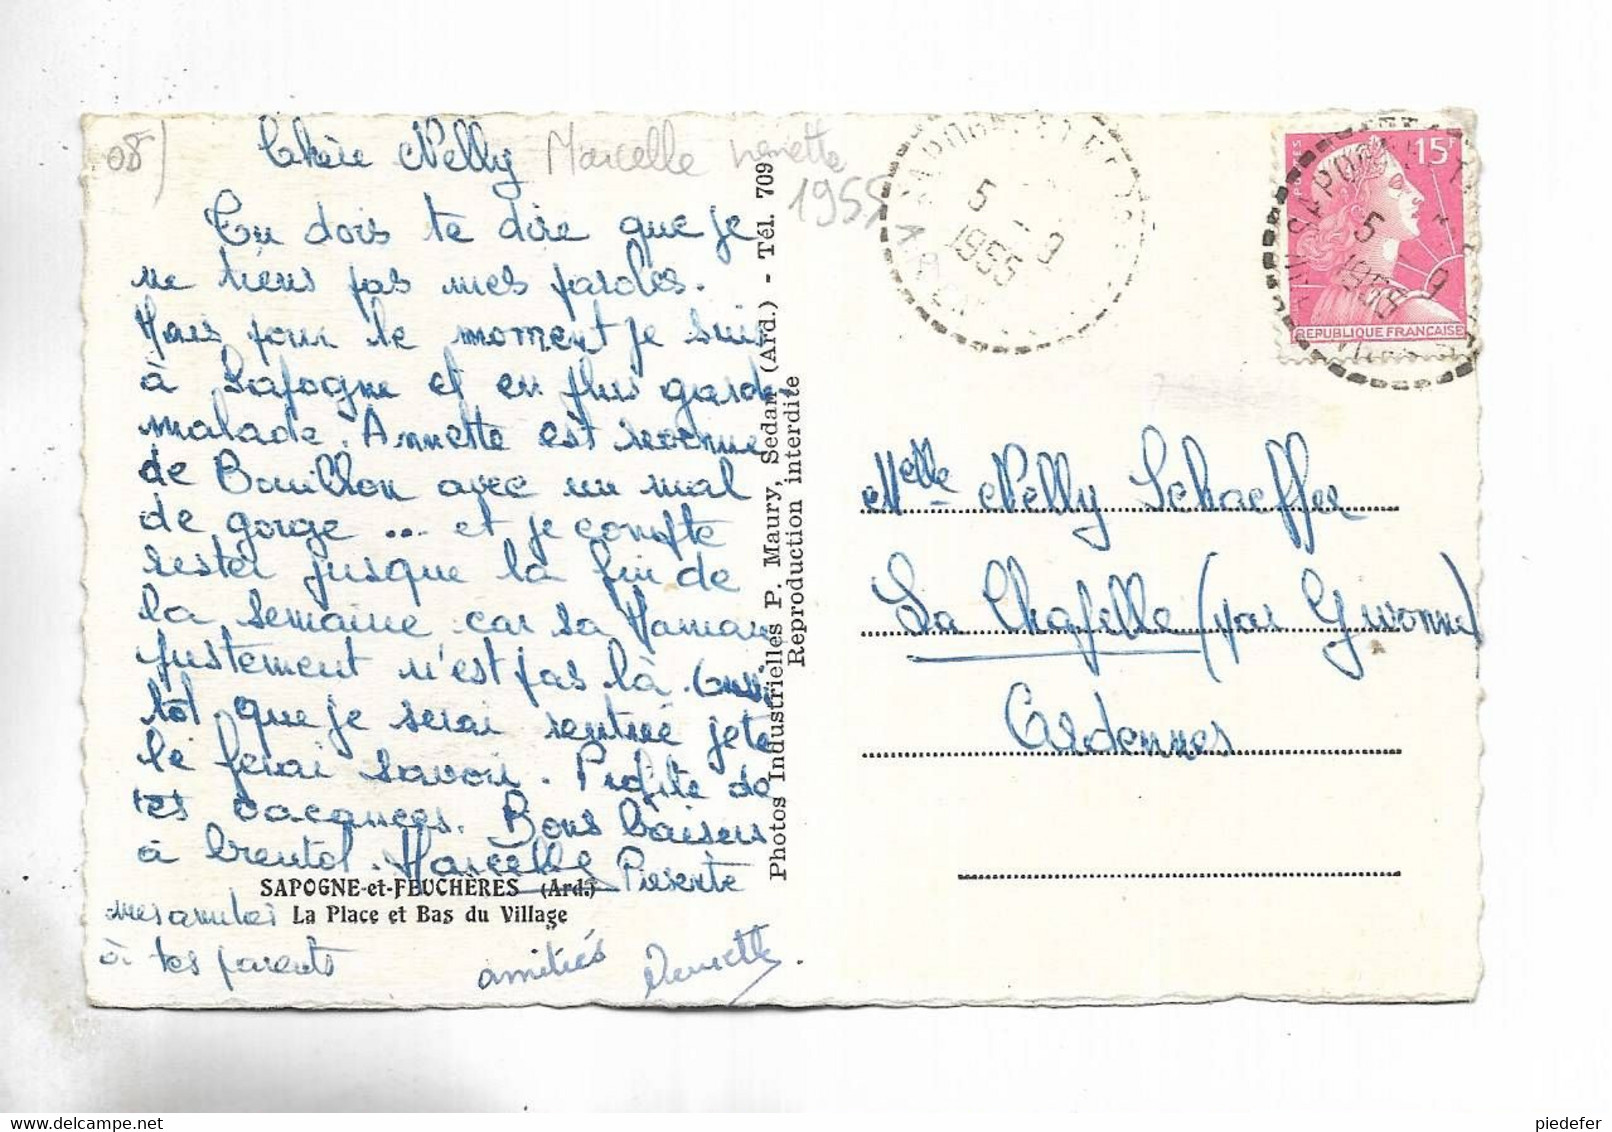 08)
Chère Nelly Marcelle
1955
Tu dois te dire que je
ne tiens pas mes paroles.
Mais pour le moment je suis
à Sapogne et en plus garde
malade. Annette est revenue
de Bouillon avec un mal
de gorge ... et je compte
rester jusque la fin de
la semaine car sa Maman
justement n'est pas là. Aussi
tôt que je serai rentrée je te
le ferai savoir. Profite de
tes vacances. Bons baisers
à bientôt. Marcelle Présente
mes amitiés
à tes parents
amitiés
SAPOGNE-et-FEUCHÈRES (Ard.)
La Place et Bas du Village
Photos Industrielles P. Maury, Sedan (Ard.) - Tél. 709
Reproduction interdite
5 - 9
1955
15F
5 - 9
REPUBLIQUE FRANÇAISE
Melle Nelly Schaeffer
La Chapelle (par Givonne)
Ardennes
piedefer